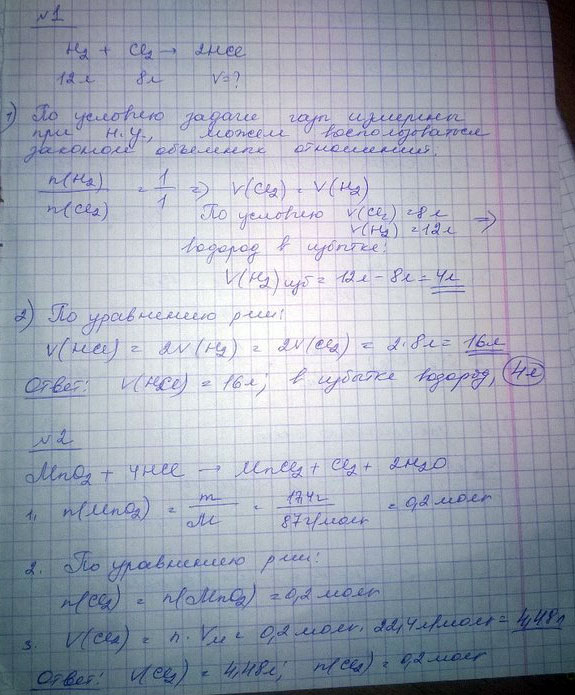 №1
H₂ + Cl₂ → 2HCl
12л 8л V=?
1) По условию задачи газы измерены
при н.у., можем воспользоваться
законом объемных отношений.
n(H₂) / n(Cl₂) = 1/1 => V(Cl₂) = V(H₂)
По условию V(Cl₂) = 8л
V(H₂) = 12л =>
водород в избытке:
V(H₂)изб = 12л - 8л = 4л
2) По уравнению р-ии:
V(HCl) = 2V(H₂) = 2V(Cl₂) = 2·8л = 16л
Ответ: V(HCl) = 16л; в избытке водород, 4л
№2
MnO₂ + 4HCl → MnCl₂ + Cl₂ + 2H₂O
1. n(MnO₂) = m/M = 17,4г / 87г/моль = 0,2 моль
2. По уравнению р-ии:
n(Cl₂) = n(MnO₂) = 0,2 моль
3. V(Cl₂) = n·Vм = 0,2 моль · 22,4 л/моль = 4,48л
Ответ: V(Cl₂) = 4,48л; n(Cl₂) = 0,2 моль